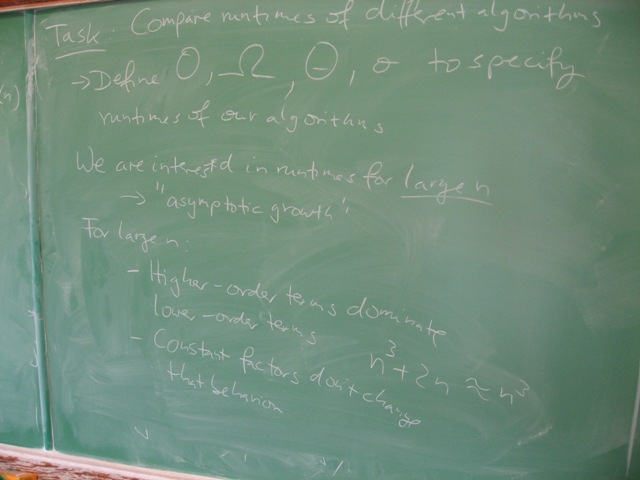 Task: Compare runtimes of different algorithms
→ Define O, Ω, Θ, o to specify
runtimes of our algorithms
(n)
We are interested in runtimes for large n
→ "asymptotic growth"
For large n:
- Higher-order terms dominate
lower-order terms
- Constant factors don't change
that behavior
n³ + 2n ≈ n³